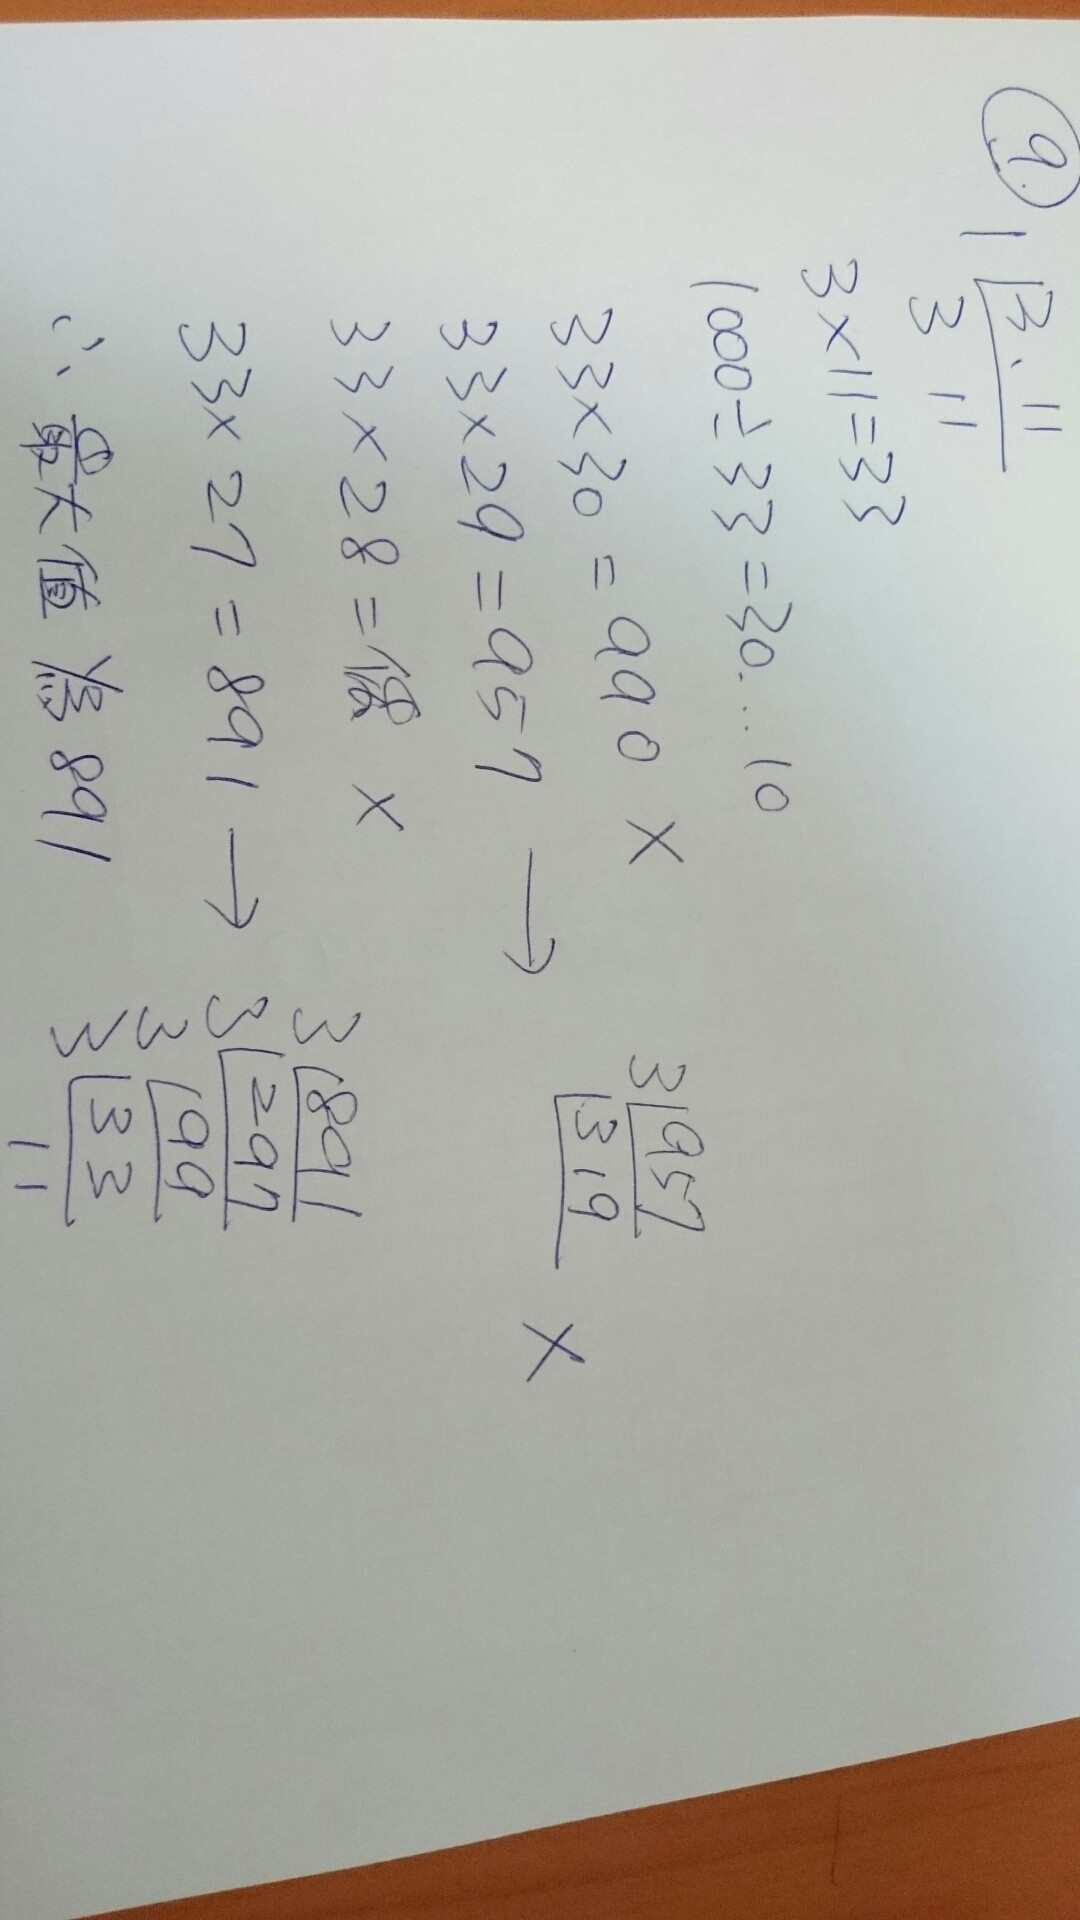 9.
1 3.11
3 11
3×11=33
1000÷33=30...10
33×30=990 ×
33×29=957 → 3 957
319 ×
33×28= ×
33×27=891 → 3 891
3 297
3 99
3 33
11
∴最大值為891